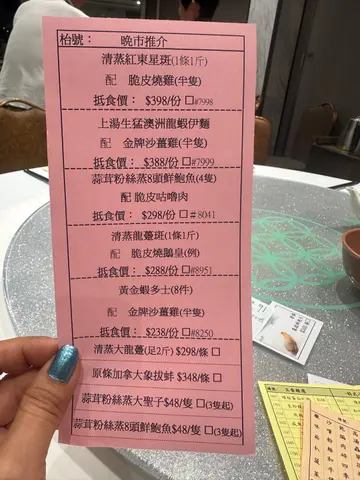 枱號： 晚市推介
清蒸紅東星斑(1條1斤)
配 脆皮燒雞(半隻)
抵食價： $398/份 □#7998
上湯生猛澳洲龍蝦伊麵
配 金牌沙薑雞(半隻)
抵食價： $388/份 □#7999
蒜茸粉絲蒸8頭鮮鮑魚(4隻)
配 脆皮咕嚕肉
抵食價： $298/份 □#8041
清蒸龍躉斑(1條1斤)
配 脆皮燒鵝皇(例)
抵食價： $288/份 □#8951
黃金蝦多士(8件)
配 金牌沙薑雞(半隻)
抵食價： $238/份 □#8250
清蒸大龍躉(足2斤) $298/條 □
原條加拿大象拔蚌 $348/條 □
蒜茸粉絲蒸大聖子$48/隻 □(3隻起)
蒜茸粉絲蒸8頭鮮鮑魚$48/隻 □(3隻起)